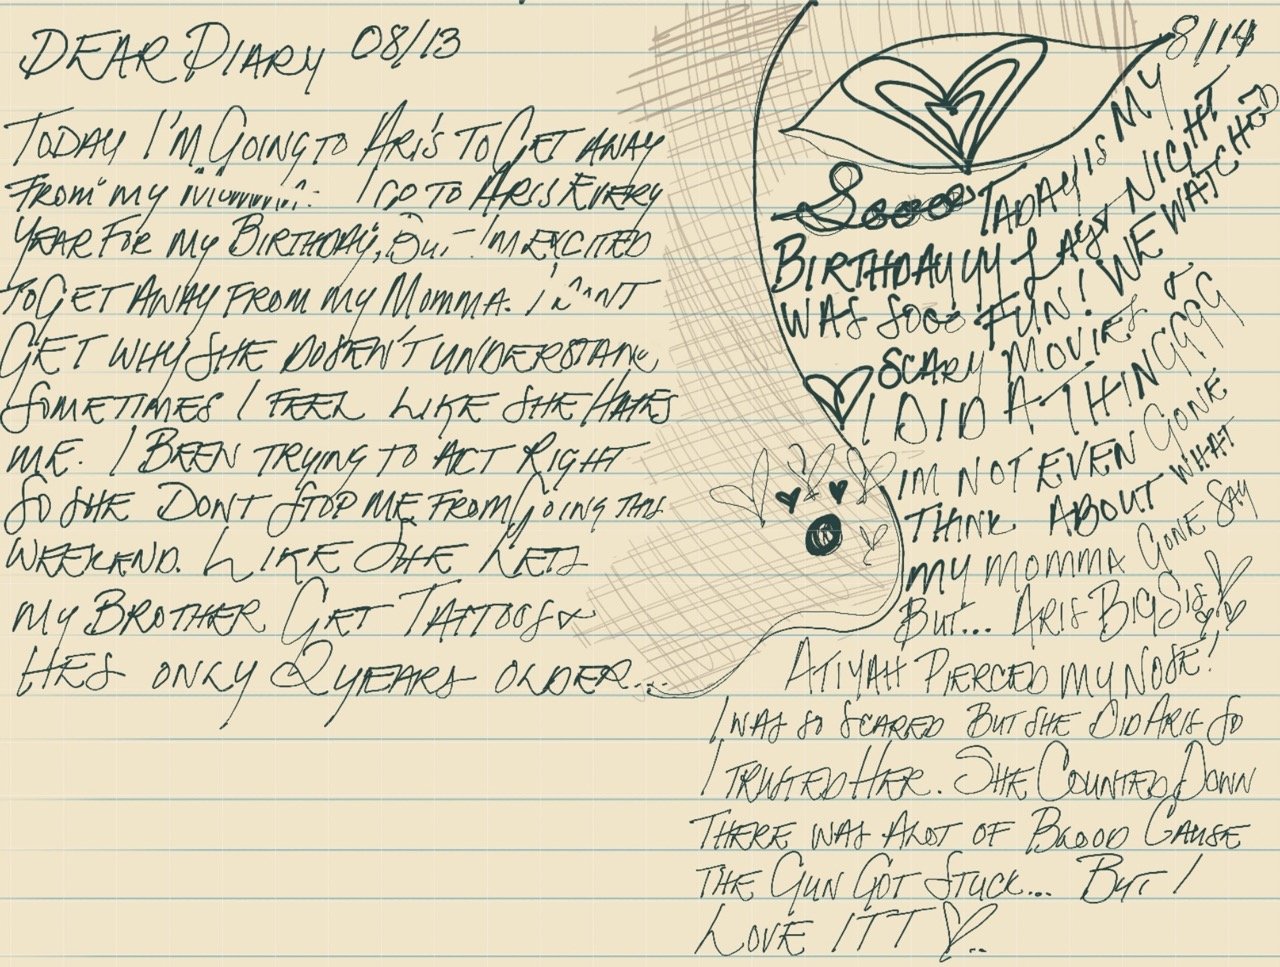 DEAR DIARY 08/13
TODAY I'M GOING TO ARI'S TO GET AWAY
FROM MY I GO TO ARIS EVERY
YEAR FOR MY BIRTHDAY, BUT I'M EXCITED
TO GET AWAY FROM MY MOMMA. I DONT
GET WHY SHE DOSEN'T UNDERSTAND
SOMETIMES I FEEL LIKE SHE HATES
ME. I BEEN TRYING TO ACT RIGHT
SO SHE DONT STOP ME FROM GOING THIS
WEEKEND. LIKE SHE LETS
MY BROTHER GET TATTOOS &
HES ONLY 2 YEARS OLDER...
8/14
Soooo TADAY IS MY
BIRTHDAYYYY LAST NIGHT
WAS SOOO FUN! WE WATCHED
SCARY MOVIES &
I DID A THINGGGG
IM NOT EVEN GONE
THINK ABOUT WHAT
MY MOMMA GONE SAY
BUT... ARIS BIG SIS
ATIYAH PIERCED MY NOSE!
I WAS SO SCARED BUT SHE DID ARIS SO
I TRUSTED HER. SHE COUNTED DOWN
THERE WAS ALOT OF BLOOD CAUSE
THE GUN GOT STUCK... BUT I
LOVE ITT ..